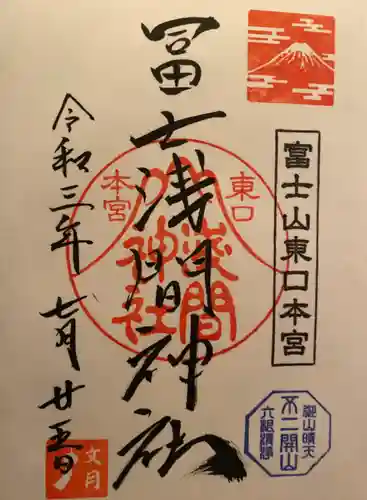 富士山東口本宮
冨士浅間神社
東口
本宮
浅間
神社
令和三年
七月廿五日
文月
不二開山
六根清浄